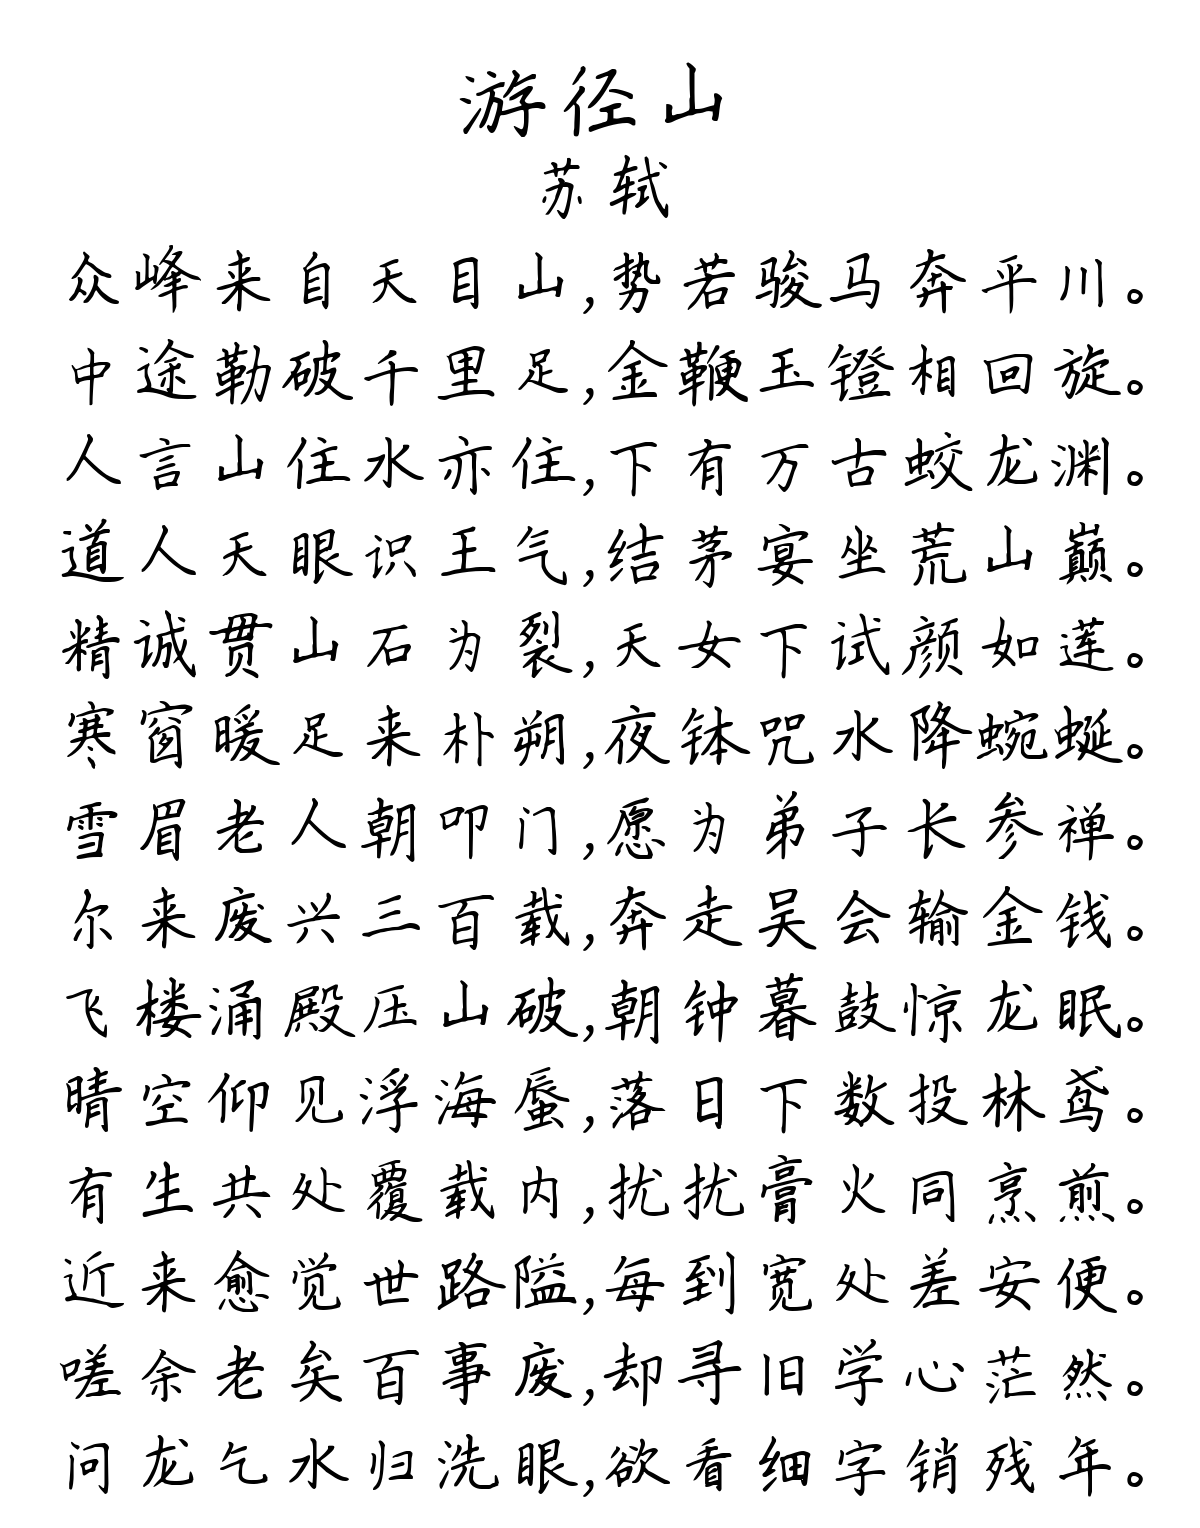 游径山
苏轼
众峰来自天目山,势若骏马奔平川。
中途勒破千里足,金鞭玉镫相回旋。
人言山住水亦住,下有万古蛟龙渊。
道人天眼识王气,结茅宴坐荒山巅。
精诚贯山石为裂,天女下试颜如莲。
寒窗暖足来朴朔,夜钵咒水降蜿蜒。
雪眉老人朝叩门,愿为弟子长参禅。
尔来废兴三百载,奔走吴会输金钱。
飞楼涌殿压山破,朝钟暮鼓惊龙眠。
晴空仰见浮海蜃,落日下数投林鸢。
有生共处覆载内,扰扰膏火同烹煎。
近来愈觉世路隘,每到宽处差安便。
嗟余老矣百事废,却寻旧学心茫然。
问龙乞水归洗眼,欲看细字销残年。